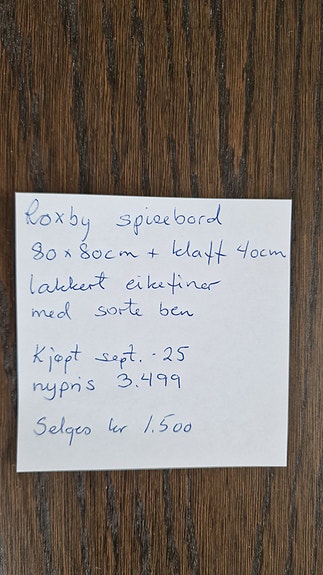 Roxby spisebord
80 x 80cm + klaff 40cm
lakkert eikefiner
med sorte ben
Kjøpt sept. -25
nypris 3.499
Selges kr 1.500